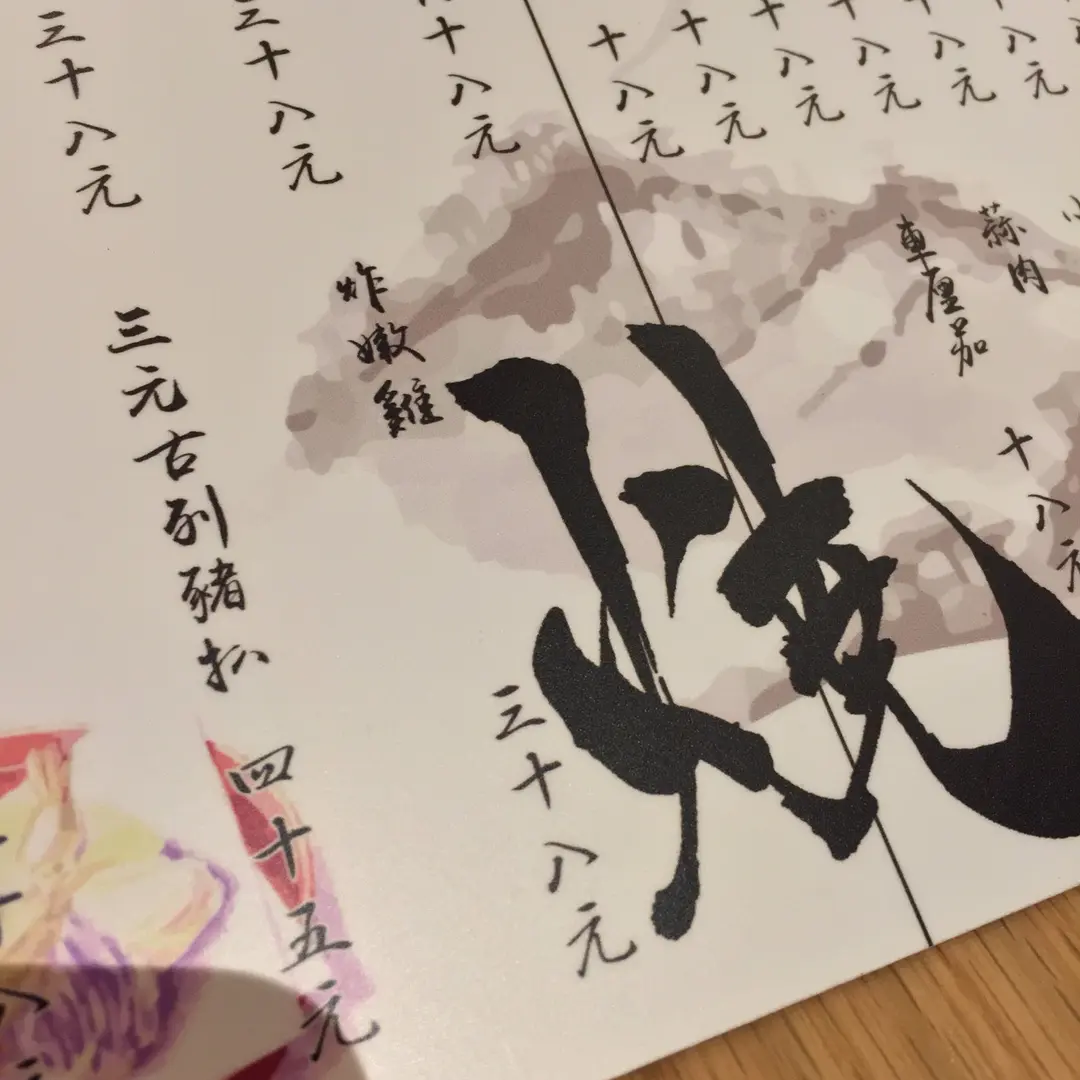 八元
八元
十八元
十八元
十八元
十八元
蒜肉
車厘茄 十八元
燒
十八元
炸嫩雞 三十八元
三十八元
三元古列豬扒 四十五元
三十八元